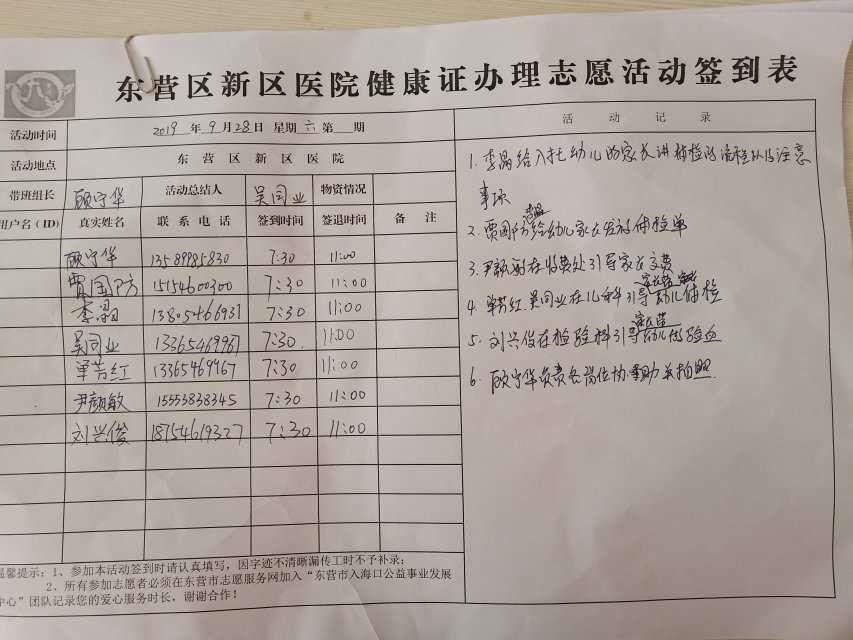 东营区新区医院健康证办理志愿活动签到表
活动时间 2019 年 9 月 28 日 星期 六 第 期 活动记录
活动地点 东营区新区医院
带班组长 顾守华 活动总结人 吴同业 物资情况
用户名(ID) 真实姓名 联系电话 签到时间 签退时间 备注
顾守华 13589985830 7:30 11:00
贾国防 15154600300 7:30 11:00
李晶 13805466931 7:30 11:00
吴同业 13365469967 7:30 11:00
单芳红 13365469967 7:30 11:00
尹颜敏 15553838345 7:30 11:00
刘兴俊 18754619327 7:30 11:00
1. 李晶给入托幼儿的家长讲补检的流程以及注意
事项
2. 贾国防给幼儿家长发放体检单
3. 尹颜敏在收费处引导家长交费
4. 单芳红、吴同业在儿科引导幼儿体检
5. 刘兴俊在检验科引导幼儿做验血
6. 顾守华负责各岗位协助并拍照.
温馨提示:1、参加本活动签到时请认真填写,因字迹不清晰漏传工时不予补录;
2、所有参加志愿者必须在东营市志愿服务网加入“东营市入海口公益事业发展
中心”团队记录您的爱心服务时长,谢谢合作!